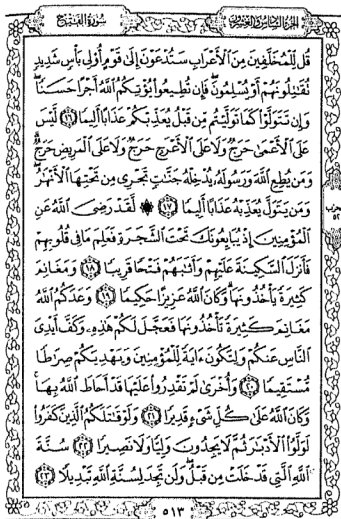 سورة الفتح
الجزء السادس والعشرون
قُل لِّلْمُخَلَّفِينَ مِنَ ٱلْأَعْرَابِ سَتُدْعَوْنَ إِلَىٰ قَوْمٍ أُو۟لِى بَأْسٍ شَدِيدٍ
تُقَٰتِلُونَهُمْ أَوْ يُسْلِمُونَ ۖ فَإِن تُطِيعُوا۟ يُؤْتِكُمُ ٱللَّهُ أَجْرًا حَسَنًا ۖ
وَإِن تَتَوَلَّوْا۟ كَمَا تَوَلَّيْتُم مِّن قَبْلُ يُعَذِّبْكُمْ عَذَابًا أَلِيمًا ١٦ لَّيْسَ
عَلَى ٱلْأَعْمَىٰ حَرَجٌ وَلَا عَلَى ٱلْأَعْرَجِ حَرَجٌ وَلَا عَلَى ٱلْمَرِيضِ حَرَجٌ ۗ
وَمَن يُطِعِ ٱللَّهَ وَرَسُولَهُۥ يُدْخِلْهُ جَنَّٰتٍ تَجْرِى مِن تَحْتِهَا ٱلْأَنْهَٰرُ ۖ
وَمَن يَتَوَلَّ يُعَذِّبْهُ عَذَابًا أَلِيمًا ١٧ ۞ لَّقَدْ رَضِىَ ٱللَّهُ عَنِ
ٱلْمُؤْمِنِينَ إِذْ يُبَايِعُونَكَ تَحْتَ ٱلشَّجَرَةِ فَعَلِمَ مَا فِى قُلُوبِهِمْ
فَأَنزَلَ ٱلسَّكِينَةَ عَلَيْهِمْ وَأَثَٰبَهُمْ فَتْحًا قَرِيبًا ١٨ وَمَغَانِمَ
كَثِيرَةً يَأْخُذُونَهَا ۗ وَكَانَ ٱللَّهُ عَزِيزًا حَكِيمًا ١٩ وَعَدَكُمُ ٱللَّهُ
مَغَانِمَ كَثِيرَةً تَأْخُذُونَهَا فَعَجَّلَ لَكُمْ هَٰذِهِۦ وَكَفَّ أَيْدِىَ
ٱلنَّاسِ عَنكُمْ وَلِتَكُونَ ءَايَةً لِّلْمُؤْمِنِينَ وَيَهْدِيَكُمْ صِرَٰطًا
مُّسْتَقِيمًا ٢٠ وَأُخْرَىٰ لَمْ تَقْدِرُوا۟ عَلَيْهَا قَدْ أَحَاطَ ٱللَّهُ بِهَا ۚ
وَكَانَ ٱللَّهُ عَلَىٰ كُلِّ شَىْءٍ قَدِيرًا ٢١ وَلَوْ قَٰتَلَكُمُ ٱلَّذِينَ كَفَرُوا۟
لَوَلَّوُا۟ ٱلْأَدْبَٰرَ ثُمَّ لَا يَجِدُونَ وَلِيًّا وَلَا نَصِيرًا ٢٢ سُنَّةَ
ٱللَّهِ ٱلَّتِى قَدْ خَلَتْ مِن قَبْلُ ۖ وَلَن تَجِدَ لِسُنَّةِ ٱللَّهِ تَبْدِيلًا ٢٣
٥١٣